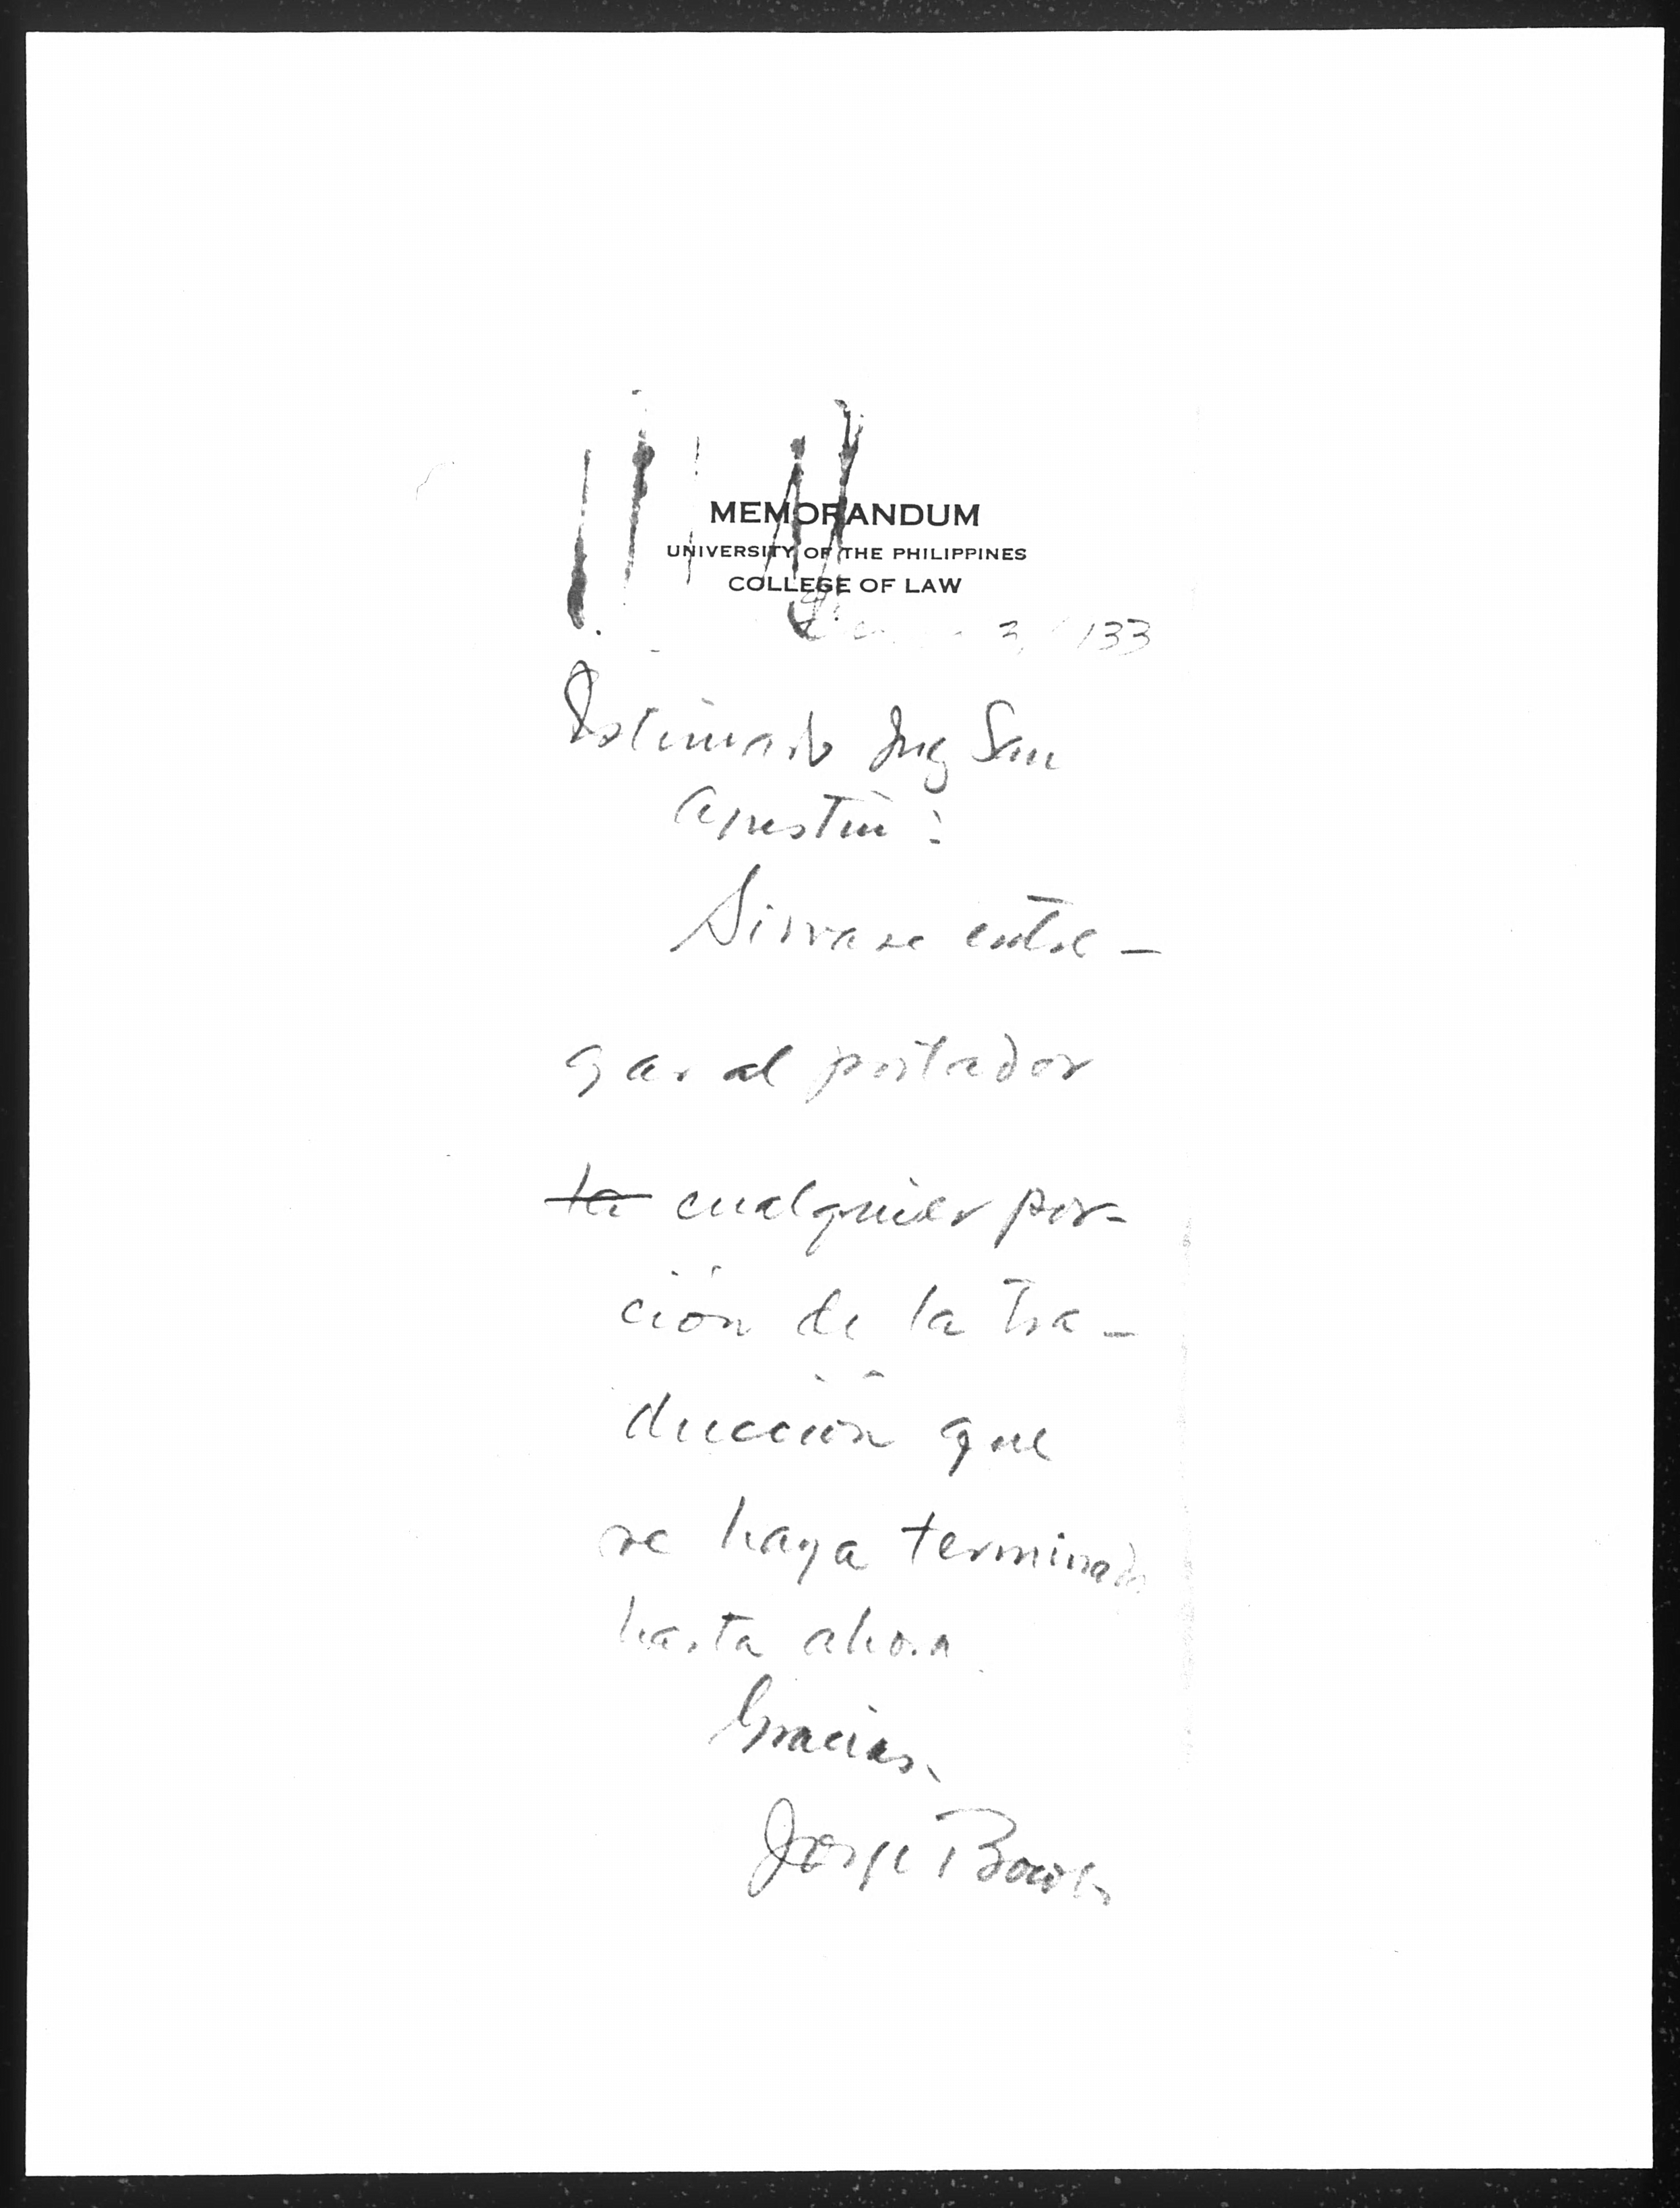 MEMORANDUM
UNIVERSITY OF THE PHILIPPINES
COLLEGE OF LAW
3, 133
Estimado Ing San
Agustin:
Sirvase entre-
gar al portador
la cualquier por-
ción de la tra-
ducción que
se haya terminado
hasta ahora
Gracias,
Jorge Bocobo